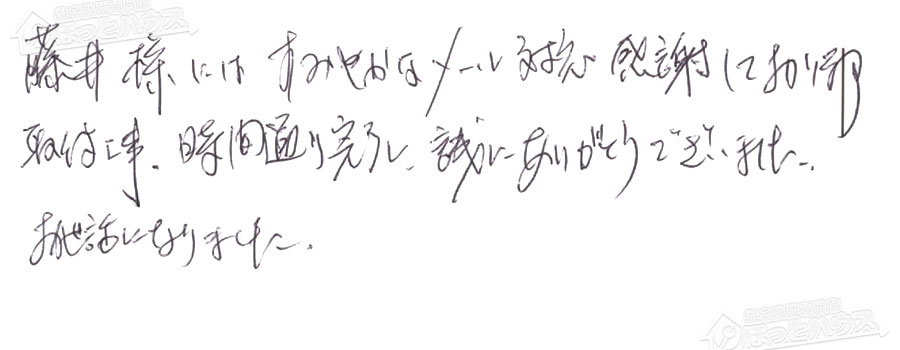 藤井様にはすみやかなメール対応感謝しております
取付工事、時間通り完了し、誠にありがとうございました。
お世話になりました。
ほっとハウス
ほっとハウス